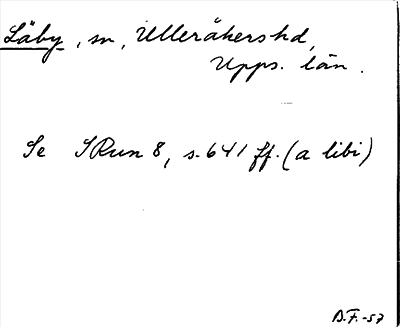 Läby, sn, Ulleråkers hd,
Upps. län.
Se SRun 8, s. 641 ff. (a libi)
D.F.-57